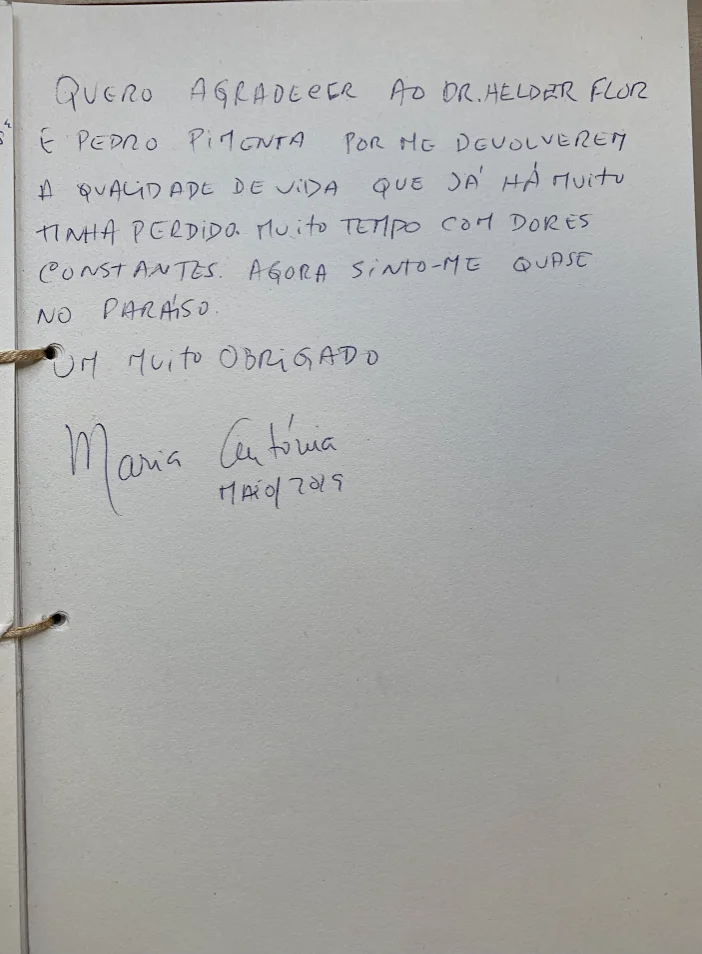 QUERO AGRADECER AO DR. HELDER FLOR
E PEDRO PIMENTA POR ME DEVOLVEREM
A QUALIDADE DE VIDA QUE JÁ HÁ MUITO
TINHA PERDIDO. MUITO TEMPO COM DORES
CONSTANTES. AGORA SINTO-ME QUASE
NO PARAÍSO.
UM MUITO OBRIGADO
Maria Antónia
MAIO/2019